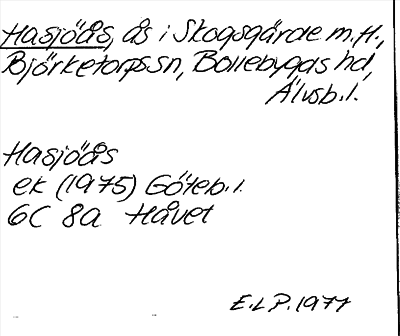 Hasjöås, ås i Skogsgärde m.fl.,
Björketorps sn, Bollebygds hd,
Älvsb.l.
Hasjöås
ek (1975) Göteb.l.
6C 8a Håvet
E.L P. 1977